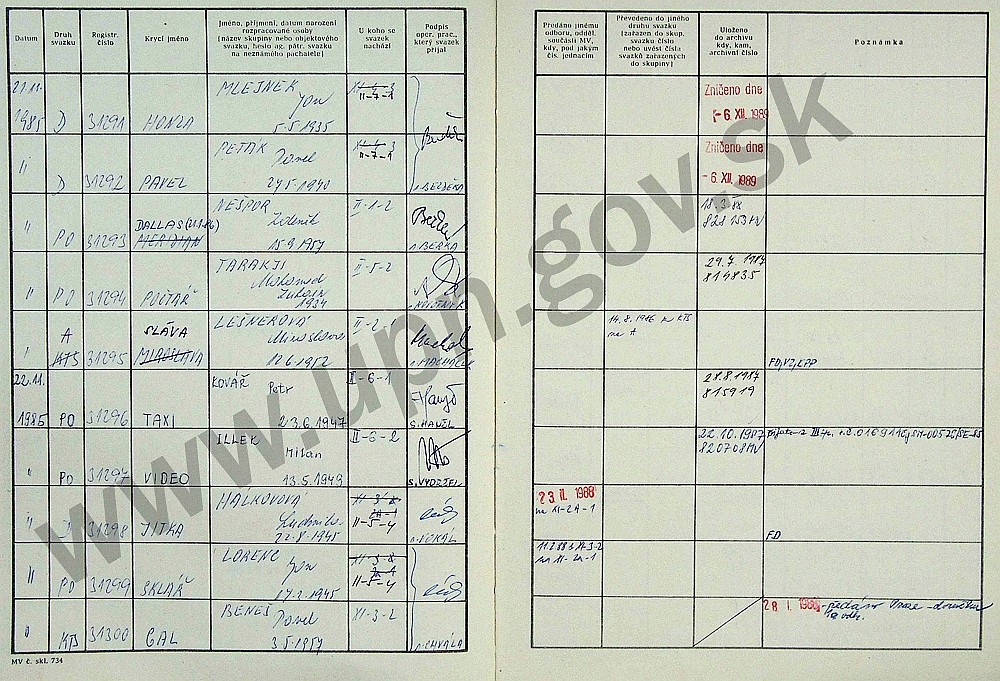 Datum
Druh
svazku
Registr.
číslo
Krycí jméno
Jméno, příjmení, datum narození
rozpracované osoby
(název skupiny nebo objektového
svazku, heslo ag. pátr. svazku
na neznámého pachatele)
U koho se
svazek
nachází
Podpis
oper. prac.,
který svazek
přijal
Předáno jinému
odboru, odděl.
součásti MV,
kdy, pod jakým
čís. jednacím
Převedeno do jiného
druhu svazku
(zařazen do skup.
svazku číslo
nebo uvést čísla
svazků zařazených
do skupiny)
Uloženo
do archivu
kdy, kam,
archivní číslo
Poznámka
21.11.
1985 D 31291 HONZA
MLEJNEK
Jan
5.5.1935
II-7-1
Zničeno dne
-6. XII. 1989
" D 31292 PAVEL
PETÁK
Pavel
24.5.1940
II-7-1
r. BEZDĚKA
Zničeno dne
-6. XII. 1989
" PO 31293
DALLAS
MERIDIAN
NEŠPOR
Zdeněk
15.9.1957
II-1-2
BERKA
18.3.88
828153 MV
" PO 31294 POČTÁŘ
TARAKJI
Mohamed
1934
II-5-2
29.7.1987
814835
" A
KTS 31295
SLÁVA
MIROSLAVA
LEŠNEROVÁ
Miroslava
10.6.1952
14.8.1986 z KTS
na A
22.11.
1985 PO 31296 TAXI
KOVÁŘ Petr
23.6.1947
II-6-1
28.8.1987
815919
" PO 31297 VIDEO
ILLEK
Milan
13.5.1949
II-6-2
22.10.1987
820708 MV
" D 31298 JITKA
HÁLKOVOVÁ
Ludmila
22.8.1945
XI-3-8
II-5-4
23. II. 1988
na XI-2A-1
FD
" PO 31299 SKLÁŘ
LORENC
Jan
17.2.1945
XI-3-8
II-5-4
na XI-2A-1
" KTS 31300 GAL
BENEŠ
Pavel
3.5.1957
XI-3-2
r. CHVÁLA
28 I. 1988
MV č. skl. 734
www.upn.gov.sk